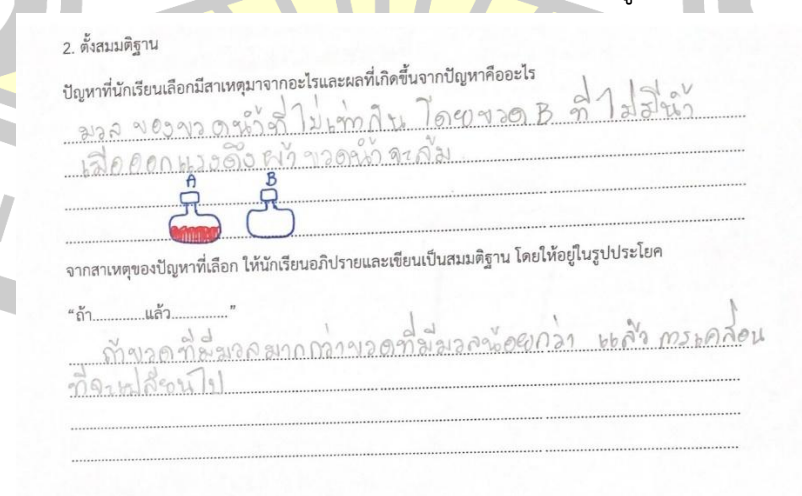 2. ตั้งสมมติฐาน
ปัญหาที่นักเรียนเลือกมีสาเหตุมาจากอะไรและผลที่เกิดขึ้นจากปัญหาคืออะไร
มวล ของขวดน้ำที่ไม่เท่ากัน โดยขวด B ที่ไม่มีน้ำ
เมื่อออกแรงดึงผ้า ขวดน้ำจะล้ม
A B
จากสาเหตุของปัญหาที่เลือก ให้นักเรียนอภิปรายและเขียนเป็นสมมติฐาน โดยให้อยู่ในรูปประโยค
“ถ้า...............แล้ว...............”
ถ้าขวดที่มีมวลมากกว่าขวดที่มีมวลน้อยกว่า แล้ว การเคลื่อน
ที่จะเปลี่ยนไป